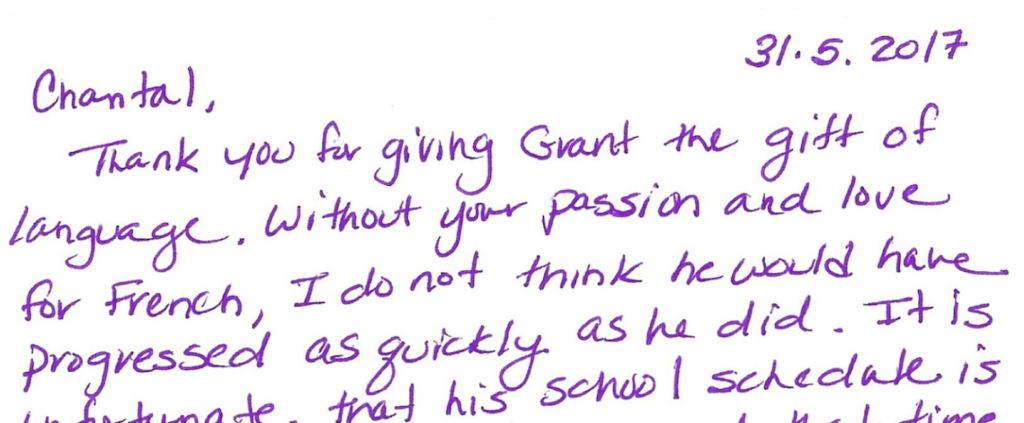 31.5.2017
Chantal,
Thank you for giving Grant the gift of
language. Without your passion and love
for French, I do not think he would have
progressed as quickly as he did. It is
unfortunate that his school schedule is
time